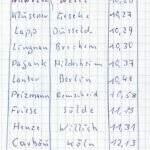 Klüsener Geseke 10,27
Lapp Düsseld 10,29
Lingnau Brochem 10,30
Pajonk Hildesheim 10,37
Lauter Berlin 10,41
Preizmann Remscheid 10,58
Friese Sölde 11,15
Henze Willich 11,31
Carboni Köln 12,13